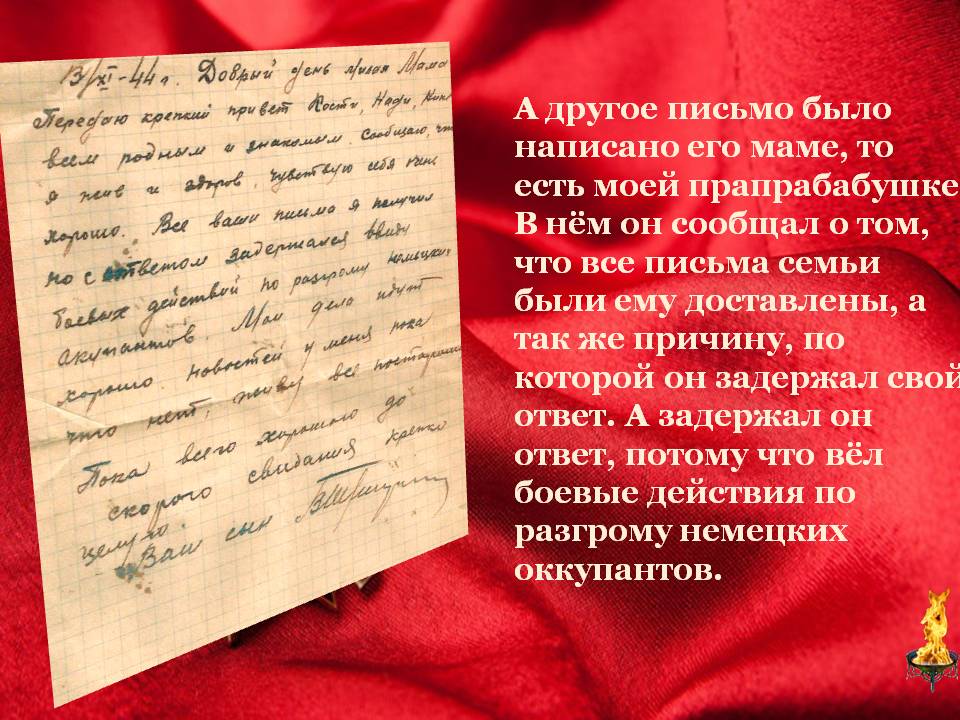 13/XI-44г. Добрый день милая Мама
Передаю крепкий привет Кости, Нади, Нин
всем родным и знакомым. Сообщаю, что
я жив и здоров, чувствую себя
хорошо. Все ваши письма я получил
но с ответом задержался ввиду
боевых действий по разгрому немецких
акупантов. Мои дела идут
хорошо. Новостей у меня пока
что нет, живу все постарому
Пока всего хорошего до
скорого свидания крепко
целую.
Ваш сын
А другое письмо было
написано его маме, то
есть моей прапрабабушке
В нём он сообщал о том,
что все письма семьи
были ему доставлены, а
так же причину, по
которой он задержал свой
ответ. А задержал он
ответ, потому что вёл
боевые действия по
разгрому немецких
оккупантов.